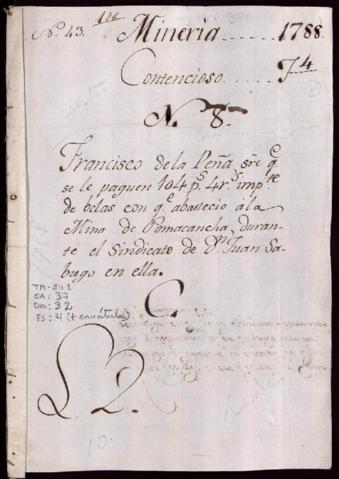 No. 43. 126 Mineria ..... 1788.
Contencioso ..... J 4
N. 8
Francisco de la Peña, sre. qe.
se le paguen 104 ps. 4 rs. impte.
de belas con qe. abastecio â la
Mina de Pomacancha, duran-
te el Sindicato de Dn. Juan Sa-
bugo en ella.
C
TM-JU 1
CA: 37
Doc: 32
FS: 4 (+ carátula)
2.
10.